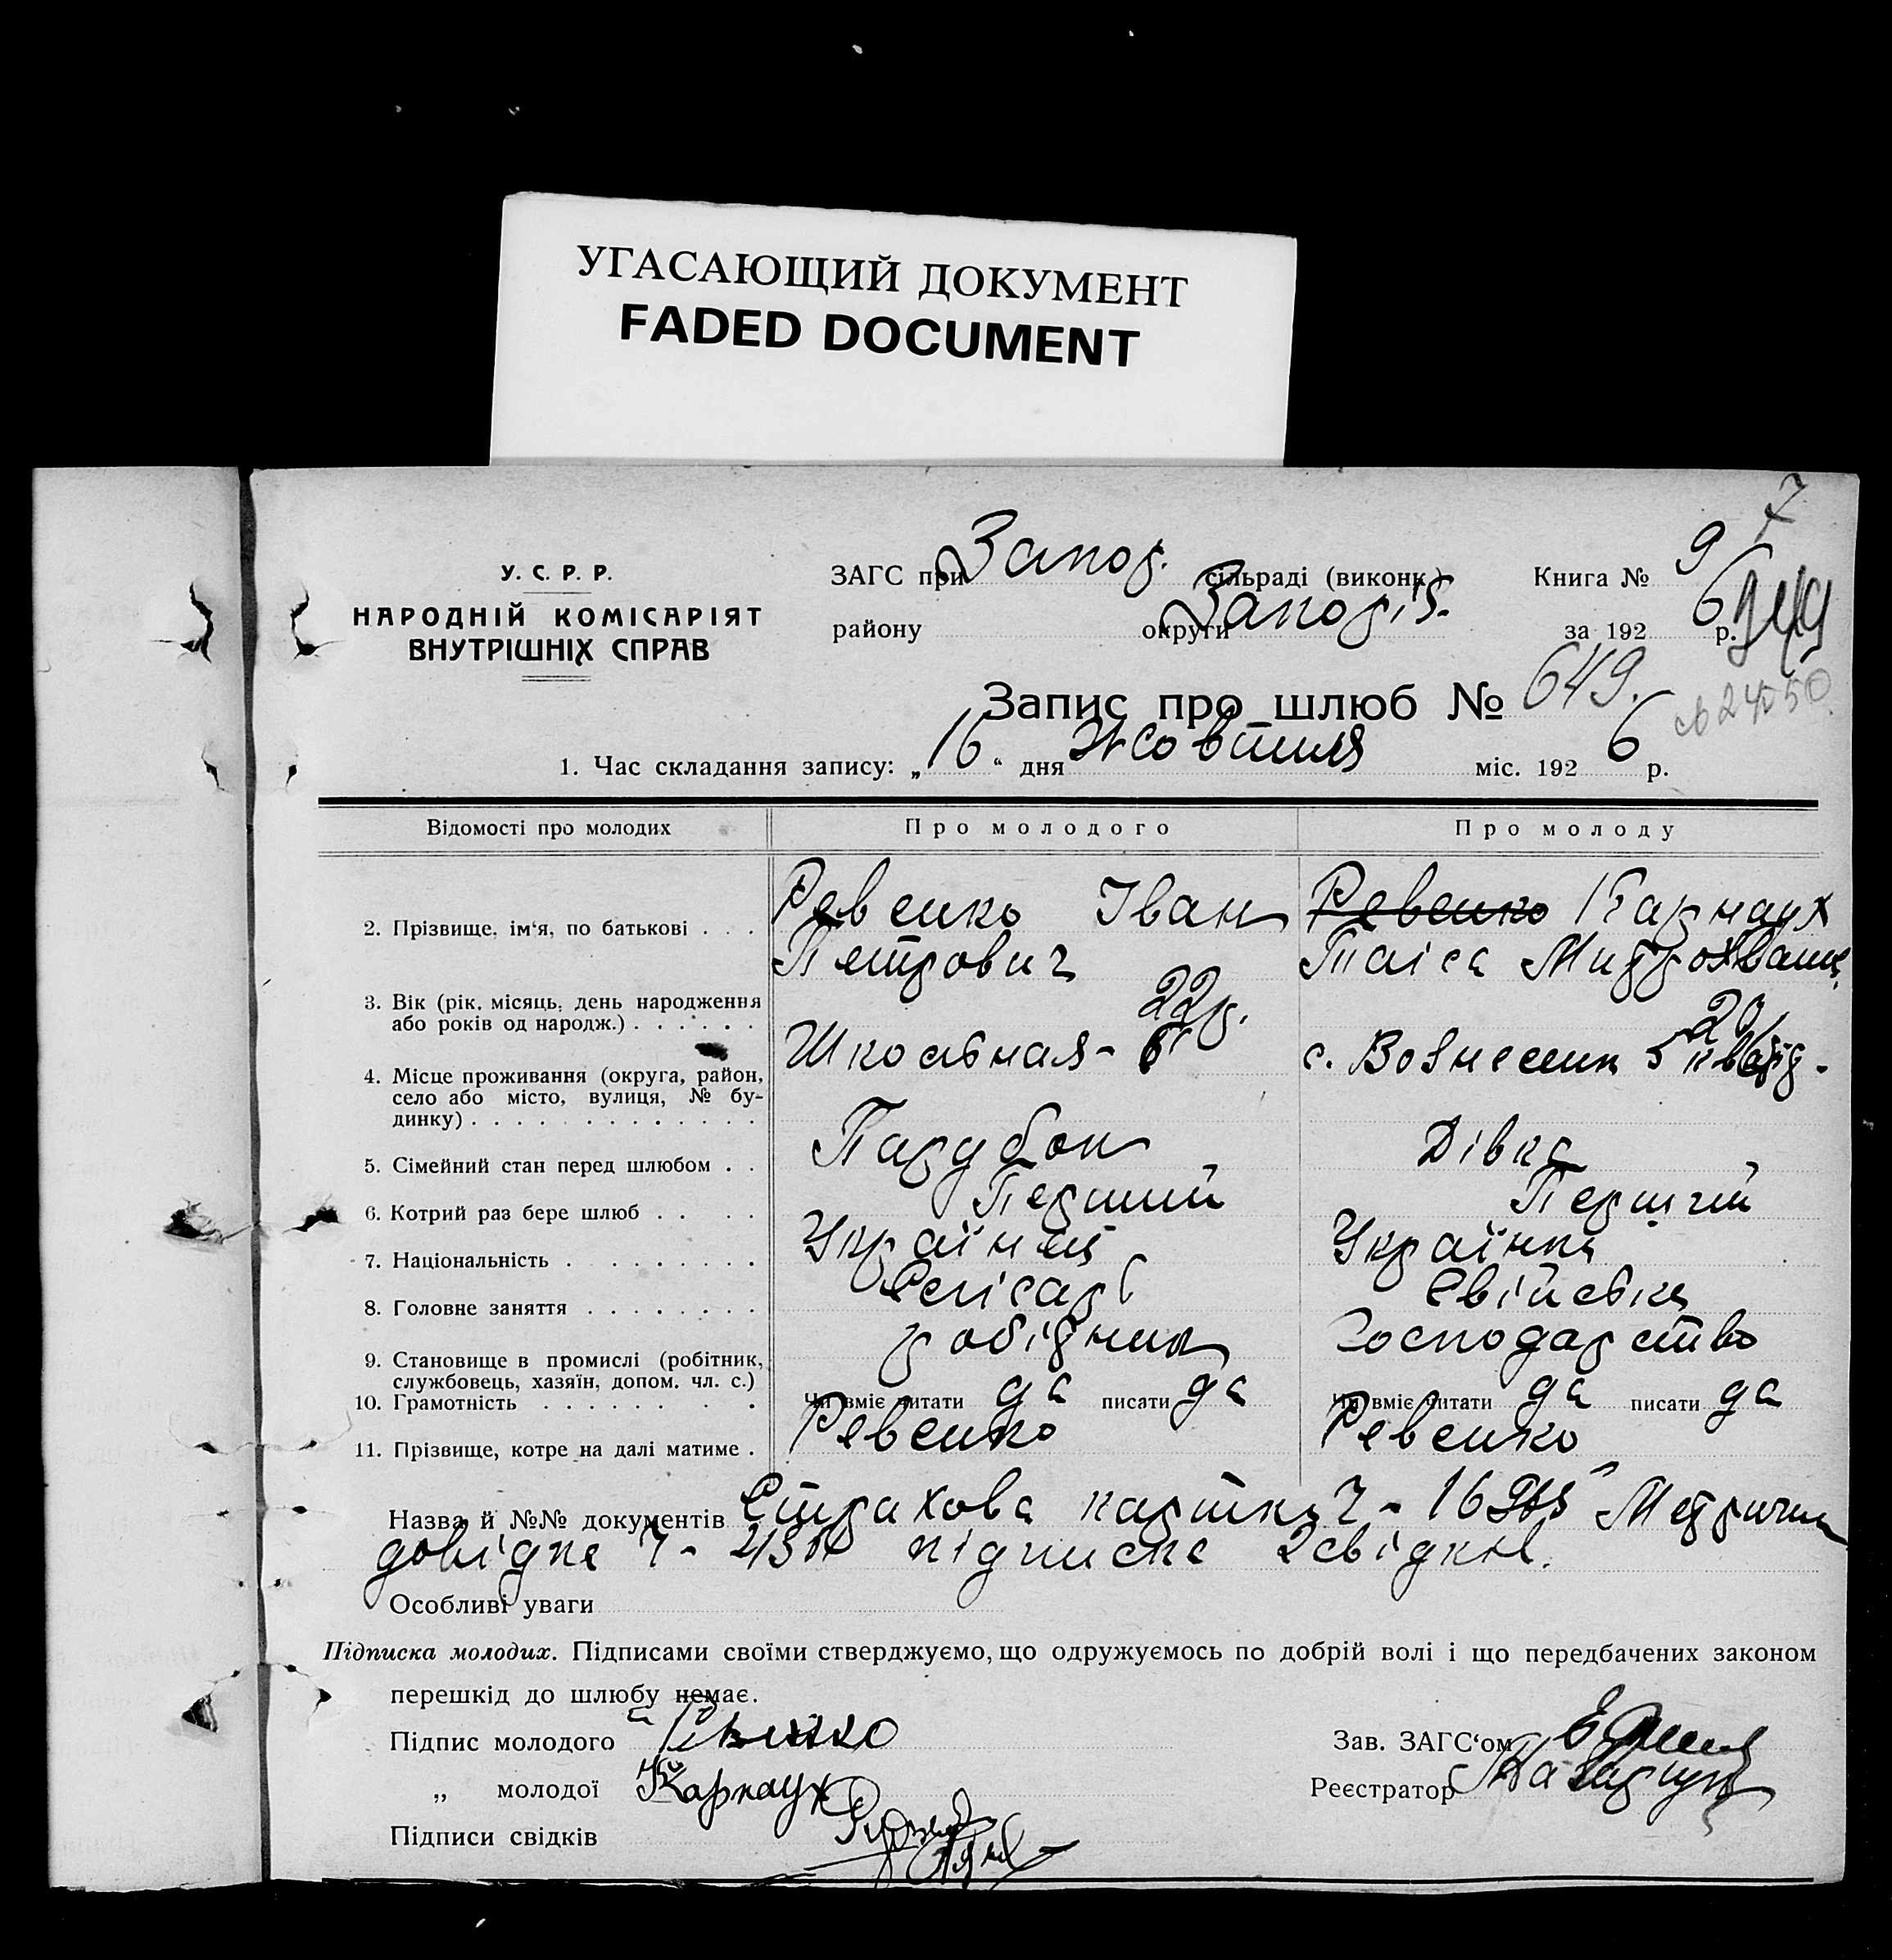 УГАСАЮЩИЙ ДОКУМЕНТ
FADED DOCUMENT
7
У. С. Р. Р.
НАРОДНІЙ КОМІСАРІЯТ
ВНУТРІШНІХ СПРАВ
ЗАГС при Запор. сільраді (виконк.) Книга № 9
району округи Запоріз. за 1926 р.
Запис про шлюб № 649.
1. Час складання запису: „16“ дня Жовтня міс. 1926 р.
Відомості про молодих Про молодого Про молоду
2. Прізвище, ім‘я, по батькові . . . Ревенко Іван Ревенко Карнаух
Петрович Таіса
3. Вік (рік, місяць, день народження
або років од народж.) . . . . . . 22р. 20
4. Місце проживання (округа, район,
село або місто, вулиця, № бу-
динку) . . . . . . . . . . . . . Школьная - с. Вознесенк 5
5. Сімейний стан перед шлюбом . . Парубок Дівка
6. Котрий раз бере шлюб . . . . Перший Перший
7. Національність . . . . . . . . . Українец Українка
8. Головне заняття . . . . . . . . Слісарь Свійське
9. Становище в промислі (робітник,
службовець, хазяїн, допом. чл. с.) робідник господарство
10. Грамотність . . . . . . . . Чи вміє читати да писати да Чи вміє читати да писати да
11. Прізвище, котре на далі матиме . Ревенко Ревенко
Назва й №№ документів Страхова картка Метрична
довідка підписка 2 свідків.
Особливі уваги
Підписка молодих. Підписами своїми стверджуємо, що одружуємось по добрій волі і що передбачених законом
перешкід до шлюбу немає.
Підпис молодого Зав. ЗАГС‘ом
„ молодої Карнаух Реєстратор
Підписи свідків